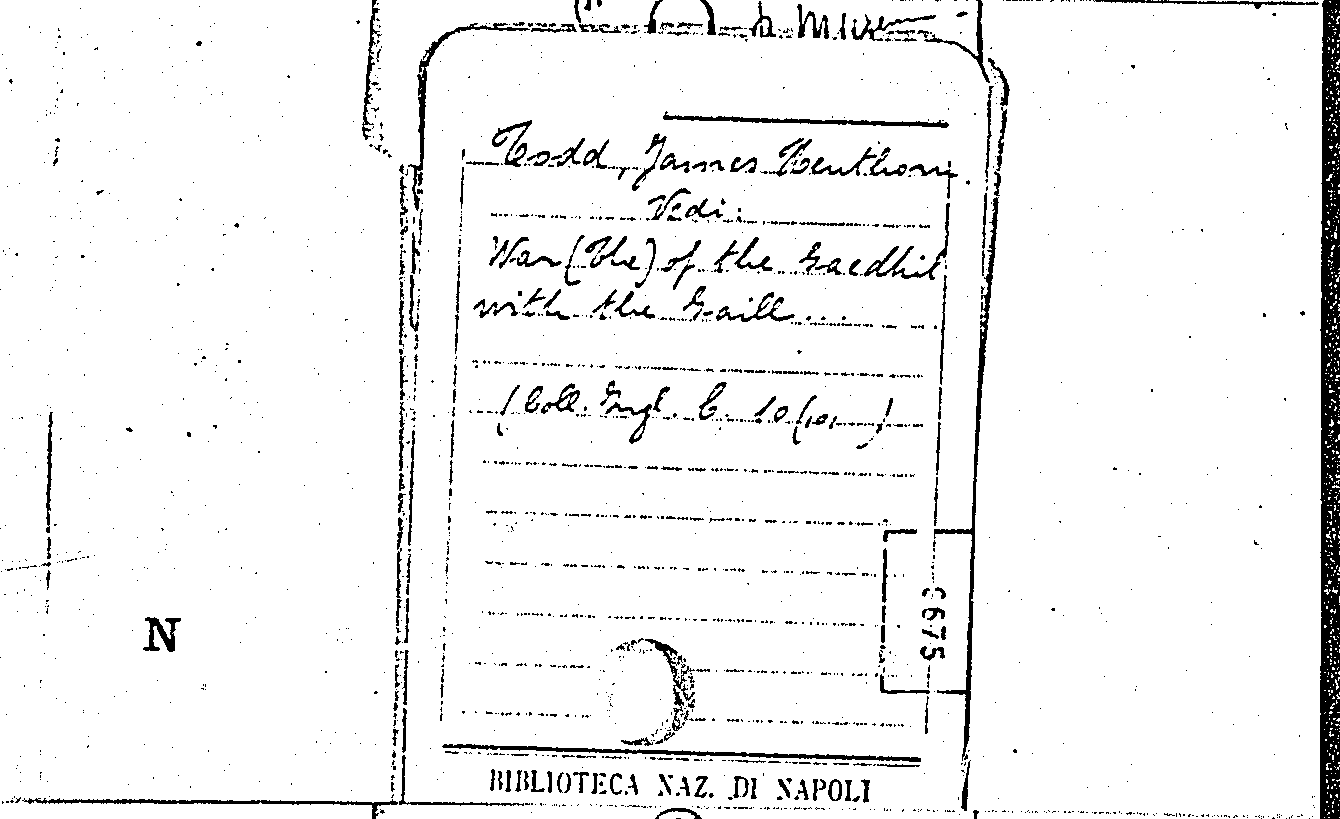 Todd, James Henthorn.
Vedi:
War (The) of the Gaedhil
with the Gaill...
(Coll. Ingl. C. 10(101
6675
N
BIBLIOTECA NAZ. DI NAPOLI